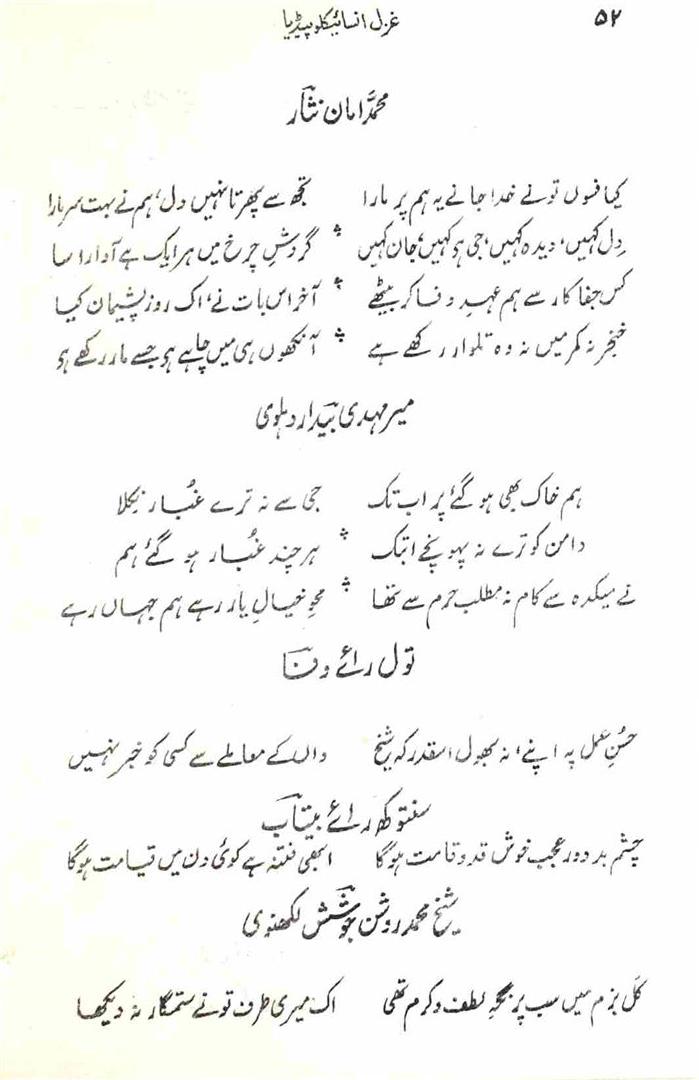 ۵۲ غزل انسائیکلوپیڈیا
محمدؐ امان نثار
کیا فسوں تونے خدا جانے یہ ہم پر مارا تجھ سے پھرتا نہیں دل، ہم نے بہت سر مارا
دِل کہیں، دیدہ کہیں، جی ہو کہیں، جان کہیں ؞ گردشِ چرخ میں ہر ایک ہے آوارا سا
کس جفا کار سے ہم عہدِ وفا کر بیٹھے ؞ آخر اس بات نے، اک روز پشیمان کیا
خنجر نہ کمر میں نہ وہ تلوار رکھے ہے ؞ آنکھوں ہی میں چاہے ہو جسے مار رکھے ہو
میر مہدی بیدار دہلوی
ہم خاک بھی ہو گئے پر اب تک جی سے نہ ترے غُبار نِکلا
دامن کو ترے نہ پہونچے ابتک ؞ ہر چند غُبار ہو گئے ہم
نے میکدہ سے کام نہ مطلب حرم سے تھا ؞ محوِ خیالِ یار رہے ہم جہاں رہے
تول رائے وفا
حُسنِ عمل پہ اپنے، نہ بھول اسقدر کہ شیخ واں کے معاملے سے کسی کو خبر نہیں
سنتوکھ رائے بیتاب
چشمِ بد دور عجب خوش قد و قامت ہوگا ابھی فتنہ ہے کوئی دن میں قیامت ہوگا
شیخ محمد روشن جوشش لکھنوی
کل بزم میں سب پر نگہِ لطف و کرم تھی اک میری طرف تونے ستمگار نہ دیکھا